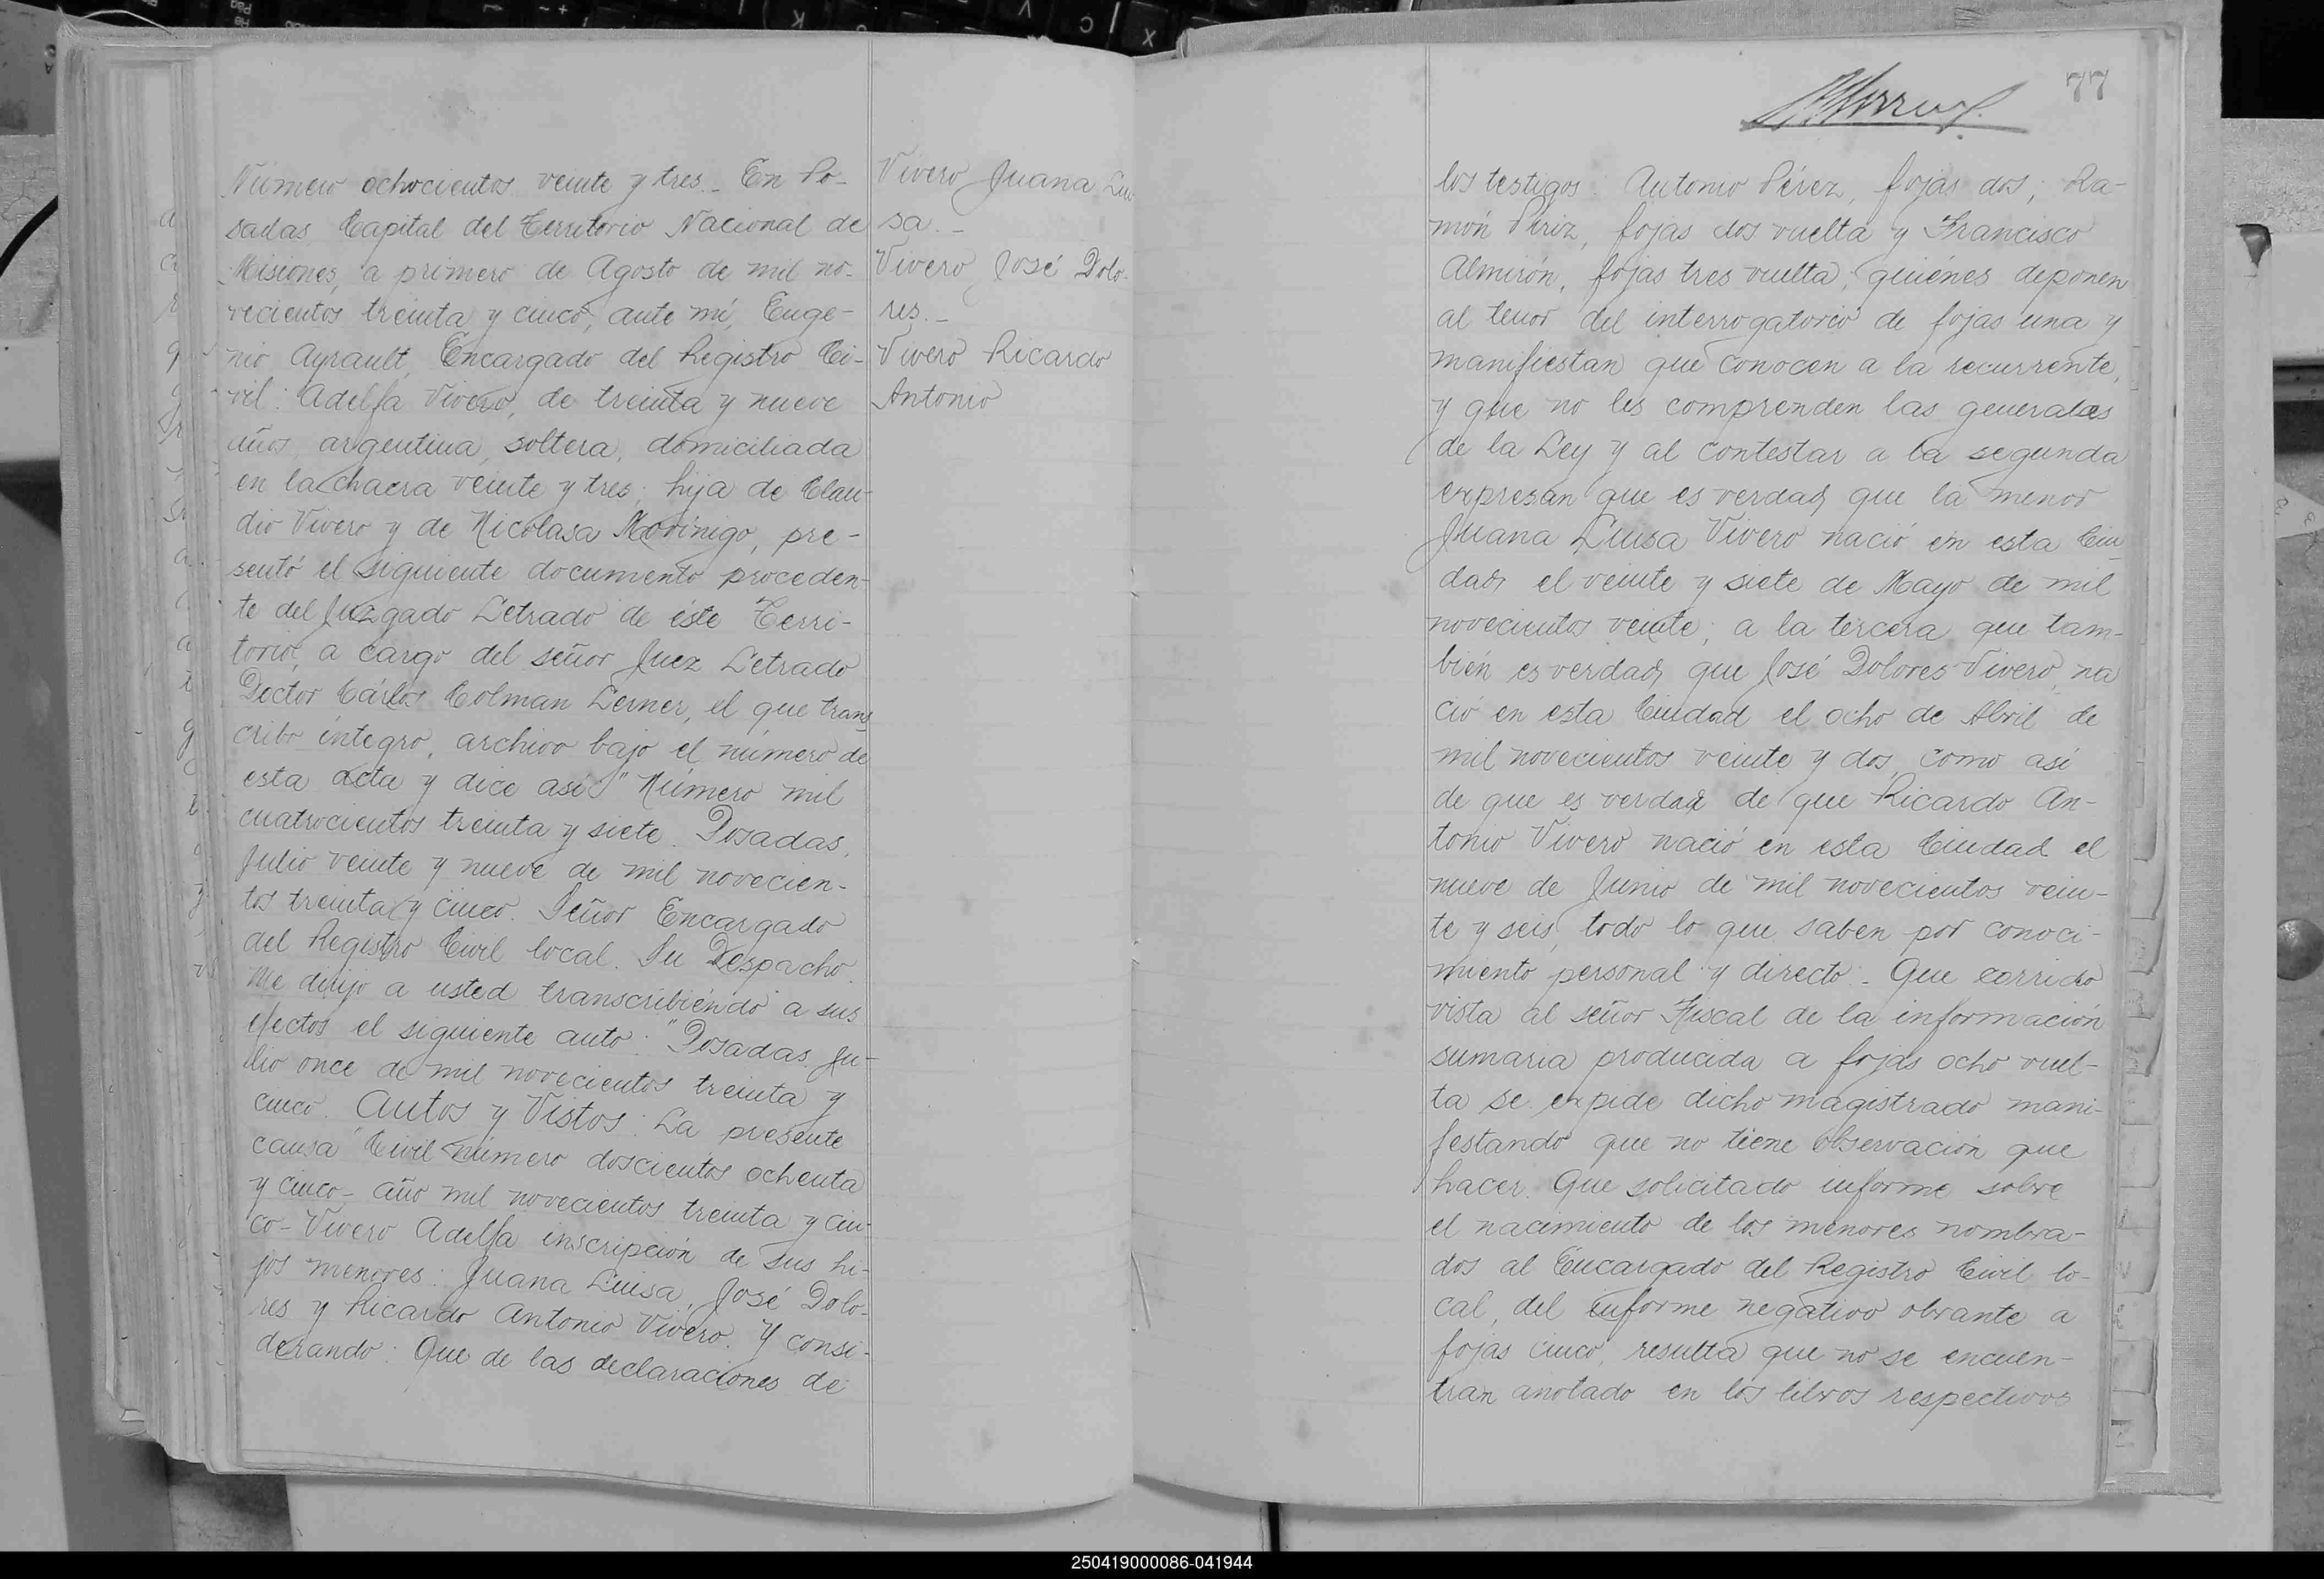 Número ochocientos veinte y tres._ En Po-
sadas, Capital del Territorio Nacional de
Misiones, a primero de Agosto de mil no-
vecientos treinta y cinco, ante mí, Euge-
nio Ayrault, Encargado del Registro Ci-
vil: Adelfa Vivero, de treinta y nueve
años, argentina, soltera, domiciliada
en la chacra veinte y tres; hija de Clau-
dio Vivero y de Nicolasa Morinigo, pre-
sentó el siguiente documento proceden-
te del Juzgado Letrado de éste Terri-
torio, a cargo del señor Juez Letrado
Doctor Cárlos Colman Lerner, el que trans
cribo íntegro, archivo bajo el número de
esta acta y dice así: "Número mil
cuatrocientos treinta y siete. Posadas,
Julio veinte y nueve de mil novecien-
tos treinta y cinco. Señor Encargado
del Registro Civil local. Su Despacho.
Me dirijo a usted transcribiéndo a sus
efectos el siguiente auto: "Posadas, Ju-
lio once de mil novecientos treinta y
cinco. Autos y Vistos: La presente
causa Civil número doscientos ochenta
y cinco- año mil novecientos treinta y cin-
co- Vivero Adelfa inscripción de sus hi-
jos menores: Juana Luisa, José Dolo-
res y Ricardo Antonio Vivero. Y consi-
derando: Que de las declaraciones de
Vivero Juana Lui
sa._
Vivero José Dolo-
res._
Vivero Ricardo
Antonio
77
los testigos: Antonio Pérez, fojas dos; Ra-
món Piriz, fojas dos vuelta y Francisco
Almirón, fojas tres vuelta; quiénes deponen
al tenor del interrogatorio de fojas una y
manifiestan que conocen a la recurrente,
y que no les comprenden las generales
de la Ley y al contestar a la segunda
expresan que es verdad que la menor
Juana Luisa Vivero nació en esta Ciu
dad el veinte y siete de Mayo de mil
novecientos veinte; a la tercera que tam-
bién es verdad que José Dolores Vivero, na
ció en esta Ciudad el ocho de Abril de
mil novecientos veinte y dos, como así
de que es verdad de que Ricardo An-
tonio Vivero nació en esta Ciudad el
nueve de Junio de mil novecientos vein-
te y seis, todo lo que saben por conoci-
miento personal y directo.- Que corrido
vista al señor Fiscal de la información
sumaria producida a fojas ocho vuel-
ta se expide dicho magistrado mani-
festando que no tiene observación que
hacer. Que solicitado informe sobre
el nacimiento de los menores nombra-
dos al Encargado del Registro Civil lo-
cal, del informe negativo obrante a
fojas cinco, resulta que no se encuen-
tran anotado en los libros respectivos
250419000086-041944